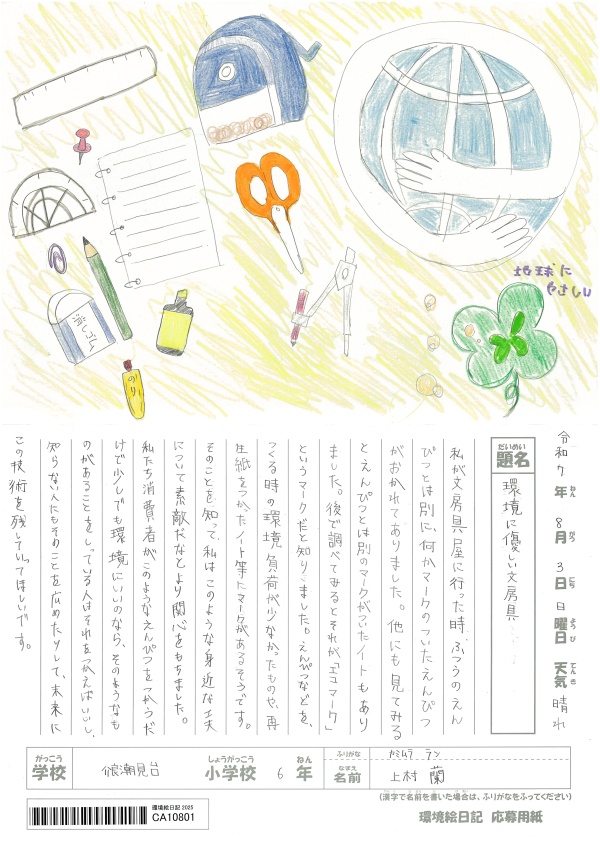 地球に
やさしい
消しゴム
のり
令和7年 8月 3日 日曜日 天気 晴れ
ねん がつ にち ようび てんき
だいめい
題名 環境に優しい文房具
私が文房具屋に行った時、ふつうのえん
ぴつとは別に、何かマークのついたえんぴつ
がおかれてありました。他にも見てみる
とえんぴつとは別のマークがついたノートもあり
ました。後で調べてみるとそれが「エコマーク」
というマークだと知りました。えんぴつなどを、
つくる時の環境負荷が少なかったものや、再
生紙をつかったノート等にマークがあるそうです。
そのことを知って、私はこのような身近な工夫
について素敵だなとより関心をもちました。
私たち消費者がこのようなえんぴつをつかうだ
けで少しでも環境にいいのなら、そのようなも
のがあることをしっている人はそれをつかえばいいし、
知らない人にもそのことを広めたりして、未来に
この技術を残していってほしいです。
がっこう
学校
しょうがっこう ねん
潮見台 小学校 6 年
ふりがな カミムラ ラン
なまえ
名前 上村 蘭
(漢字で名前を書いた場合は、ふりがなをふってください)
環境絵日記 2025
CA10801
環境絵日記 応募用紙